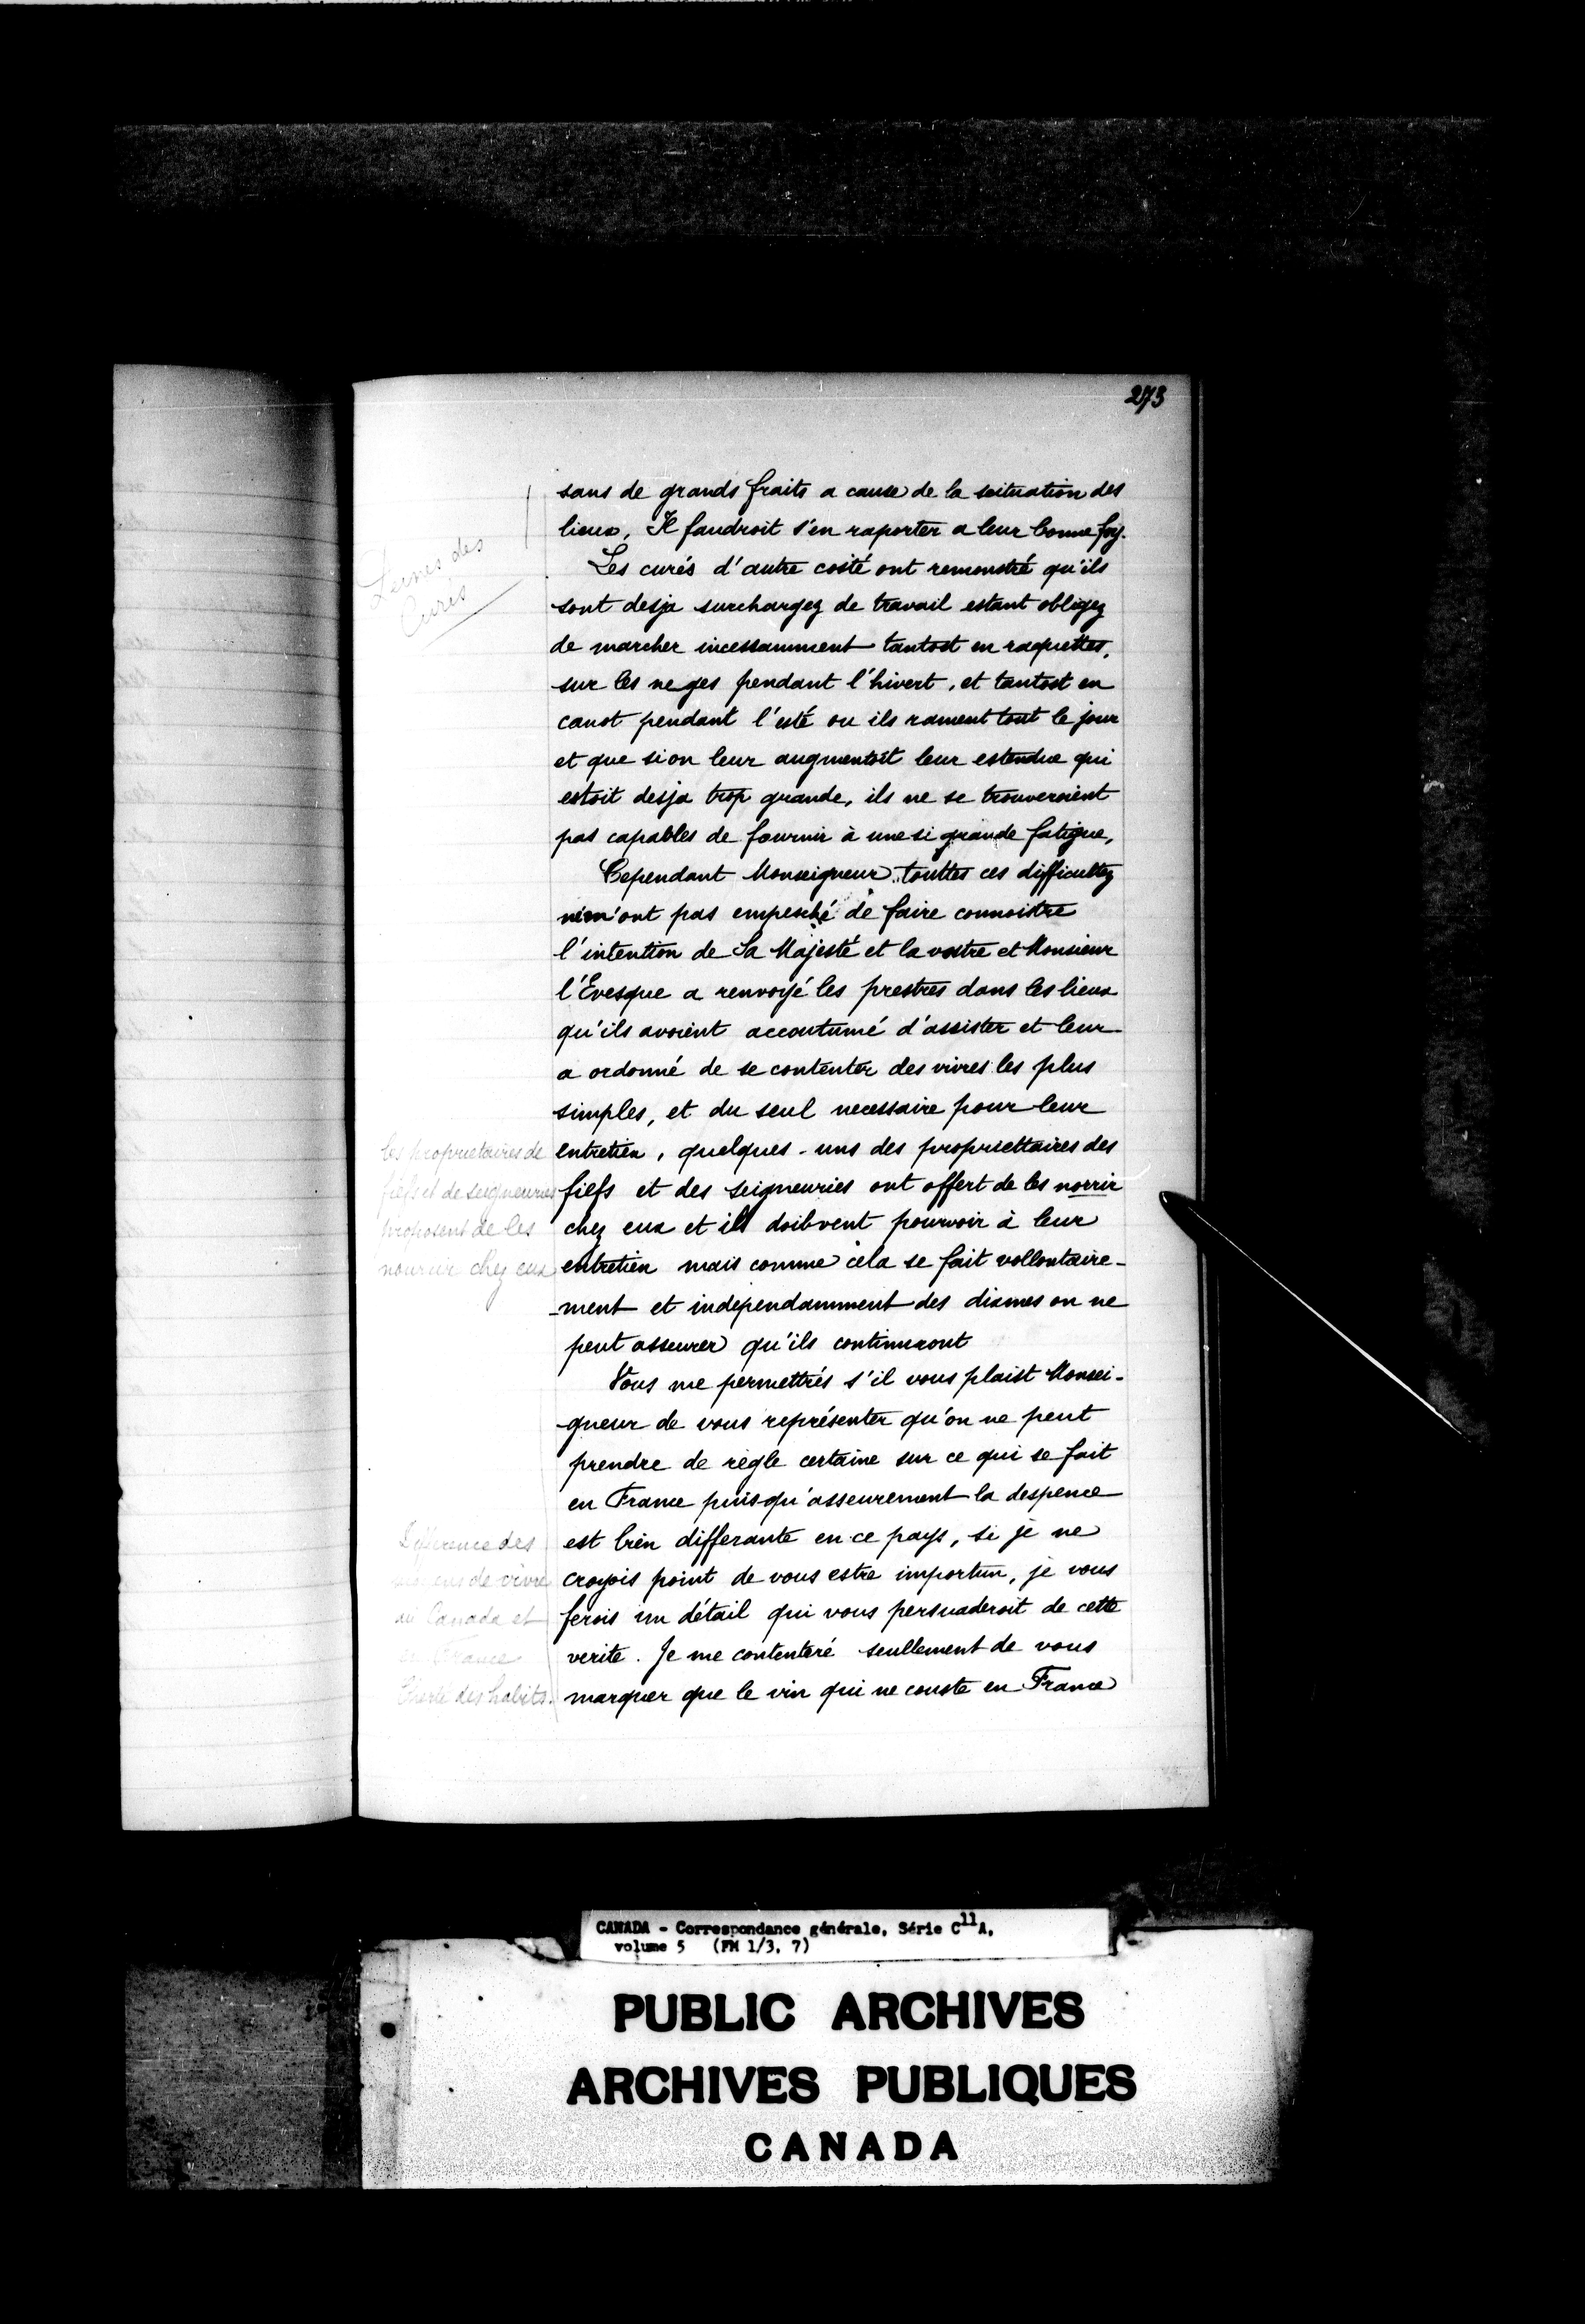 273
sans de grands fraits a cause de la scituation des
lieux, Il faudroit s'en raporter a leur bonne foy.
des
Curés
Les curés d'autre costé ont remonstré qu'ils
sont desja surchargez de travail estant obligez
de marcher incessamment tantost en raquettes,
sur les neges pendant l'hivert, et tantost en
canot pendant l'esté ou ils rament tout le jour
et que si on leur augmentoit leur estendue qui
estoit desja trop grande, ils ne se trouveroient
pas capables de fournir à une si grande fatigue,
Cependant Monseigneur, touttes ces difficultez
ne m'ont pas empesché de faire connoistre
l'intention de Sa Majesté et la vostre et Monsieur
l'Evesque a renvoyé les prestres dans les lieux
qu'ils avoient accoutumé d'assister et leur
a ordonné de se contenter des vivres les plus
simples, et du seul necessaire pour leur
entretien, quelques-uns des propriettaires des
fiefs et des seigneuries ont offert de les norrir
chez eux et ils doibvent pourvoir à leur
entretien mais comme cela se fait vollontaire-
-ment et independamment des dixmes on ne
peut asseurer qu'ils continuront
Les proprietaires de
fiefs et de seigneuries
proposent de les
nourrir chez eux
Vous me permettrés s'il vous plaist Monsei-
-gneur de vous représenter qu'on ne peut
prendre de règle certaine sur ce qui se fait
en France puisqu'asseurement la despence
est bien differante en ce pays, si je ne
croyois point de vous estre importun, je vous
ferois un détail qui vous persuaderoit de cette
verite. Je me contenteré seullement de vous
marquer que le vin qui ne couste en France
Difference des
de vivre
au Canada et
en France
Cherté des habits.
CANADA - Correspondance générale, Série C11A,
volume 5 (FM 1/3, 7)
PUBLIC ARCHIVES
ARCHIVES PUBLIQUES
CANADA